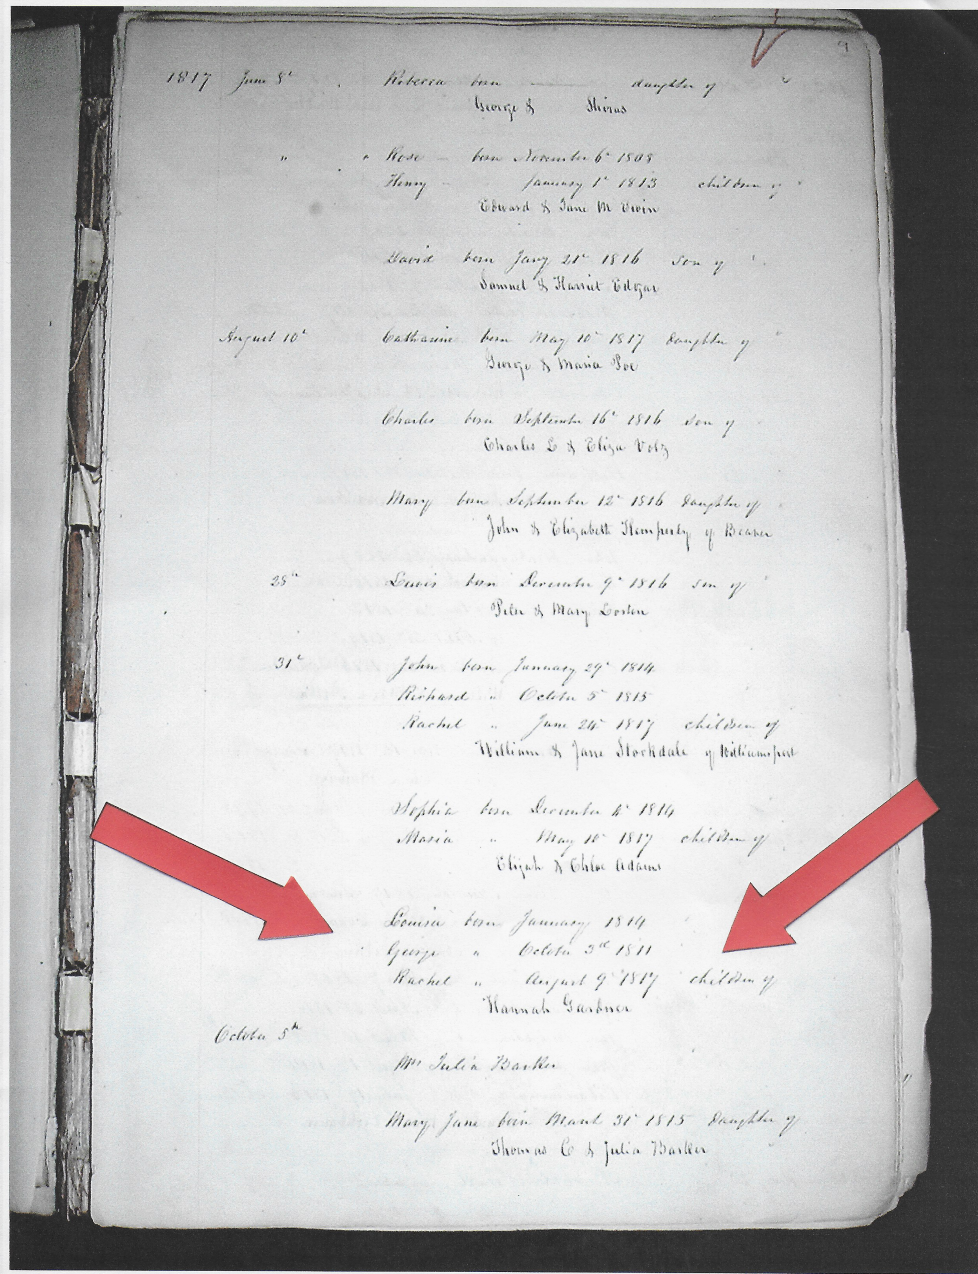 9
1817 June 8th Rebecca born daughter of "
George & Shiras
" " Rose born November 6th 1808
Henry " January 1st 1813 children of "
Edward & Jane M
David born Jany 21st 1816 son of "
Samuel & Harriet Edgar
August 10th Catharine born May 10th 1817 daughter of "
George & Maria Poe
Charles born September 16th 1816 son of "
Charles L & Eliza Volz
Mary born September 12th 1816 daughter of "
John & Elizabeth Hemperly of Beaver
born December 9th 1816 son of "
Peter & Mary
31st John born January 29th 1814
Richard " October 5th 1815
Rachel " June 24th 1817 children of
William & Jane Stockdale of Williamsport
Sophia born December 1814
Maria " May 10th 1817 children of
Elijah & Chloe Adams
Louisa born January 1814
George " October 3rd 1811
Rachel " August 9th 1817 children of
Hannah Gardner
October 5th
Mrs Julia Barker
Mary Jane born March 31st 1815 daughter of
Thomas C & Julia Barker "